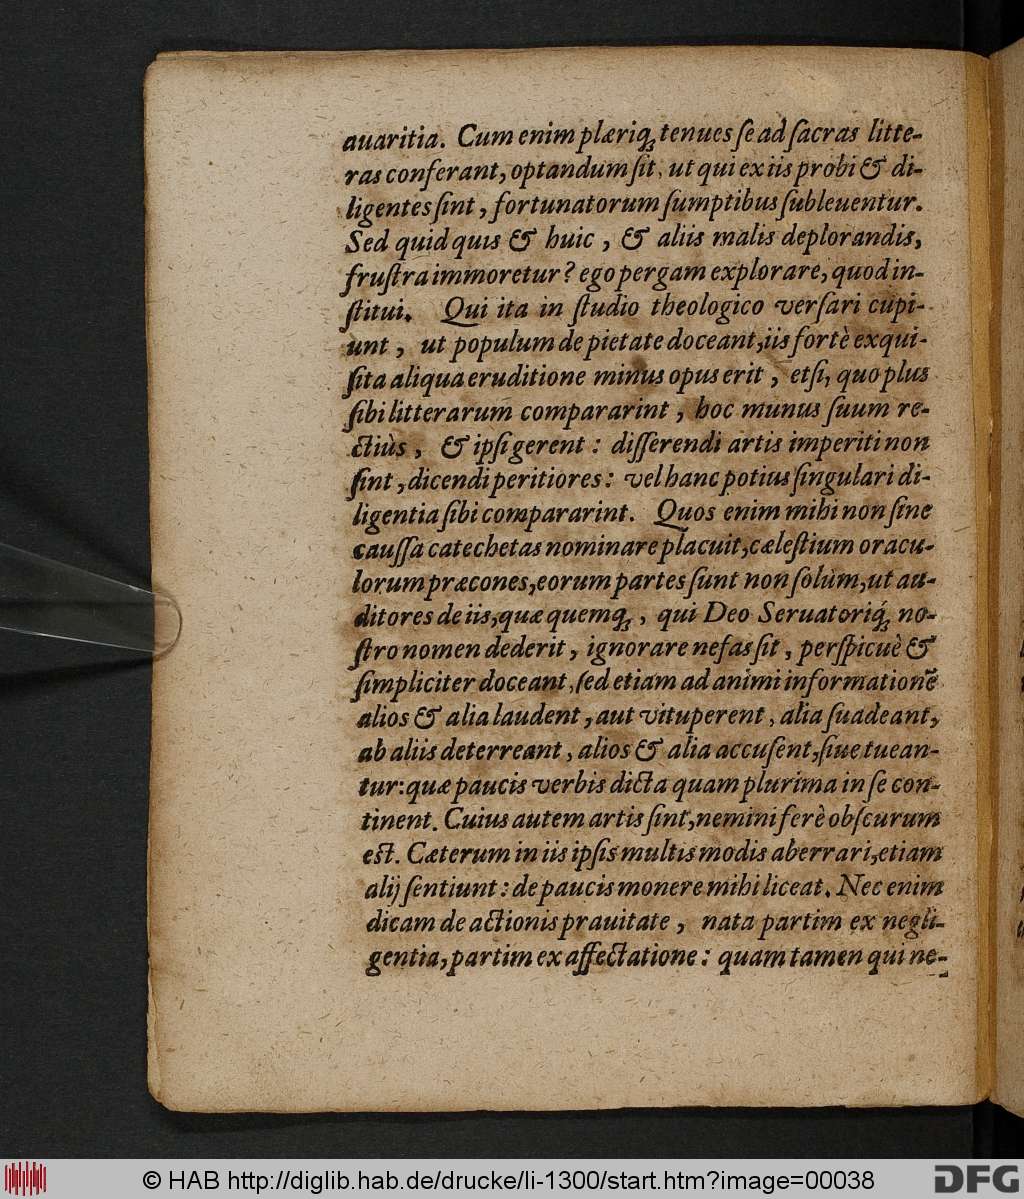 auaritia. Cum enim plæriq́ꝫ tenues ſe ad ſacras litte-
ras conferant, optandum ſit, ut qui ex iis probi & di-
ligentes ſint, fortunatorum ſumptibus ſubleuentur.
Sed quid quis & huic, & aliis malis deplorandis,
fruſtra immoretur? ego pergam explorare, quod in-
ſtitui. Qui ita in ſtudio theologico verſari cupi-
unt, ut populum de pietate doceant, iis fortè exqui-
ſita aliqua eruditione minus opus erit, etſi, quo plus
ſibi litterarum compararint, hoc munus ſuum re-
ctiùs, & ipſi gerent: diſſerendi artis imperiti non
ſint, dicendi peritiores: vel hanc potius ſingulari di-
ligentia ſibi compararint. Quos enim mihi non ſine
cauſſa catechetas nominare placuit, cæleſtium oracu-
lorum præcones, eorum partes ſunt non ſolùm, ut au-
ditores de iis, quæ quemq́ꝫ, qui Deo Seruatoriq́ꝫ no-
ſtro nomen dederit, ignorare nefas ſit, perſpicuè &
ſimpliciter doceant, ſed etiam ad animi informationẽ
alios & alia laudent, aut vituperent, alia ſuadeant,
ab aliis deterreant, alios & alia accuſent, ſiue tuean-
tur: quæ paucis verbis dicta quam plurima in ſe con-
tinent. Cuius autem artis ſint, nemini ferè obſcurum
eſt. Cæterum in iis ipſis multis modis aberrari, etiam
alij ſentiunt: de paucis monere mihi liceat. Nec enim
dicam de actionis prauitate, nata partim ex negli-
gentia, partim ex affectatione: quam tamen qui ne-
© HAB http://diglib.hab.de/drucke/li-1300/start.htm?image=00038
DFG